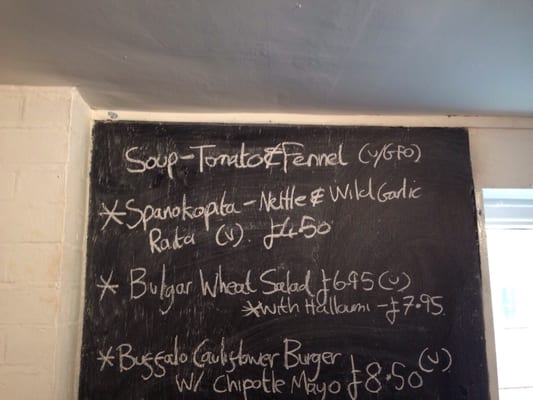 Soup-Tomato & Fennel (v/GFO)
* Spanokopita - Nettle & Wild Garlic
Raita (v). £4.50
* Bulgar Wheat Salad £6.95 (v)
* With Halloumi - £7.95.
* Buffalo Cauliflower Burger
W/ Chipotle Mayo £8.50 (v)